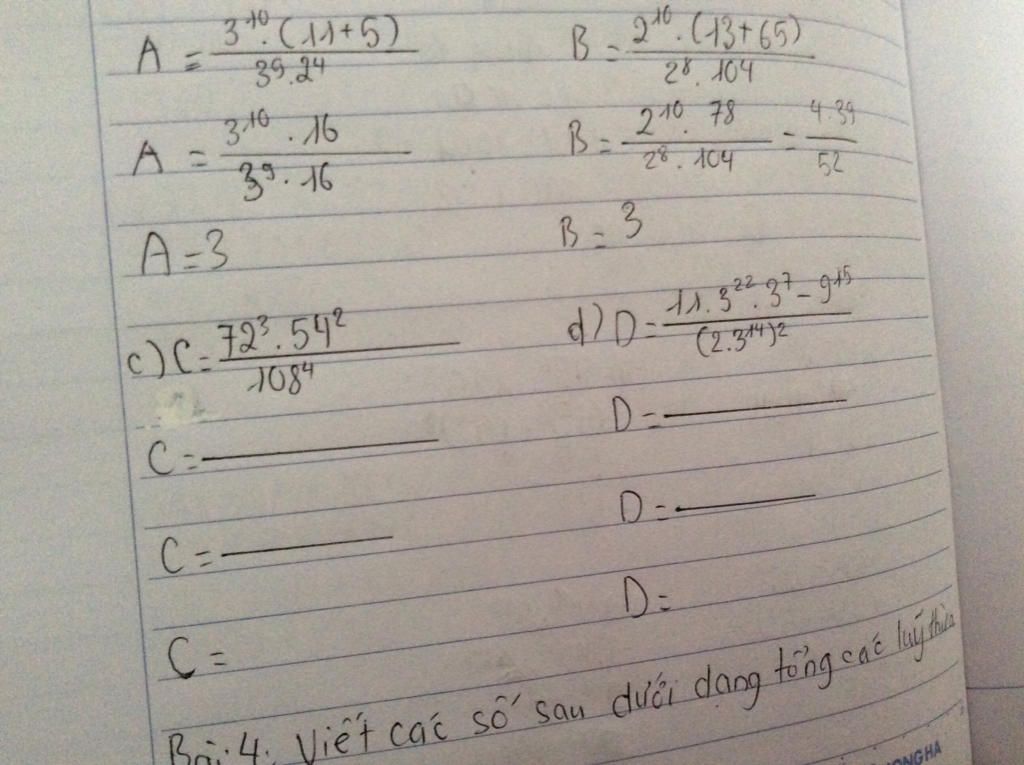 A = 3^10 . (11+5) / 3^9 . 24 B = 2^10 . (13+65) / 2^8 . 104
A = 3^10 . 16 / 3^9 . 16 B = 2^10 . 78 / 2^8 . 104 = 4.39 / 52
A = 3 B = 3
c) C = 72^3 . 54^2 / 108^4 d) D = 11.3^22 . 3^7 - 9^15 / (2.3^14)^2
C = D =
C = D =
C = D =
Bài 4: Viết các số sau dưới dạng tổng các luỹ thừa
ONG HA